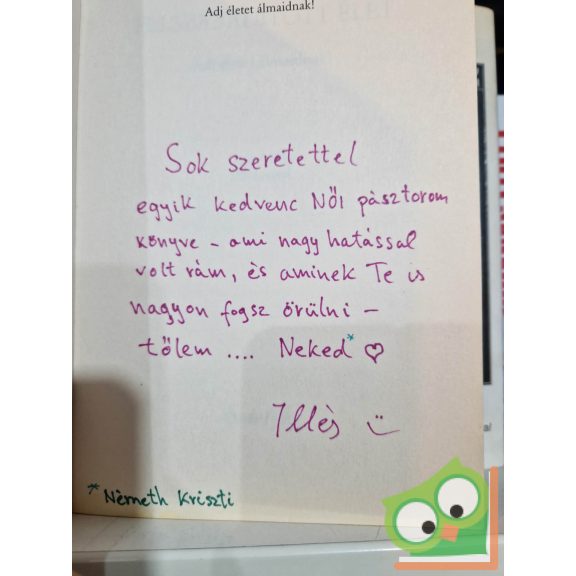 Adj életet álmaidnak!
Sok szeretettel
egyik kedvenc Női pàsztorom
könyve - ami nagy hatással
volt rám, ès aminek Te is
nagyon fogsz örülni -
tőlem .... Neked* ♡
Illès
*Németh Kriszti